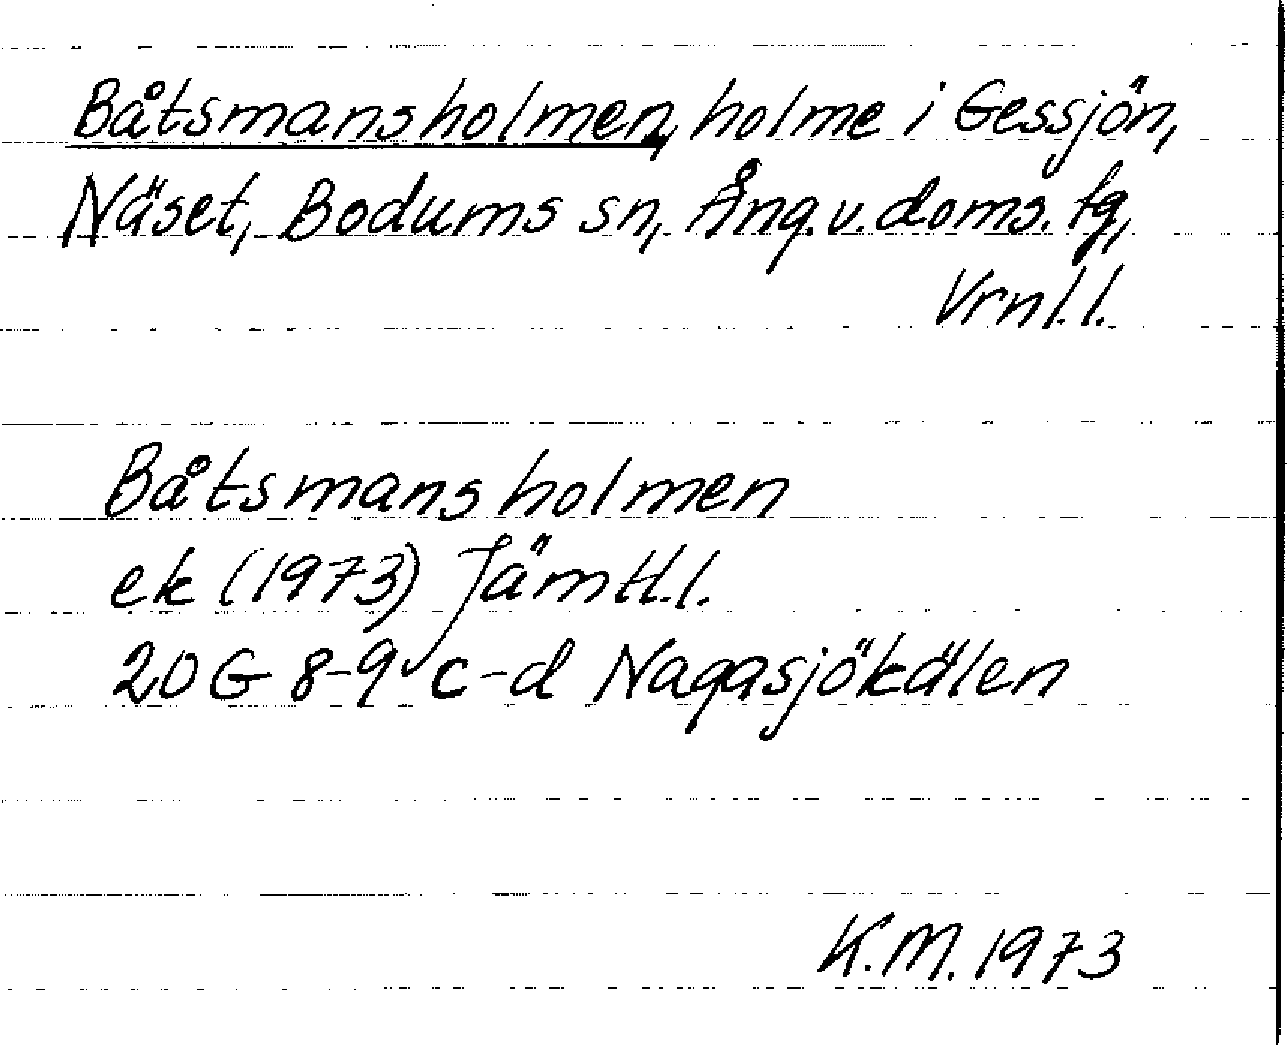 Båtsmansholmen, holme i Gessjön,
Näset, Bodums sn, Ång.v.doms.tg,
Vrnl.l.
Båtsmansholmen
ek (1973) Jämtl.l.
20 G 8-9 c-d Nagasjökälen
K.M. 1973